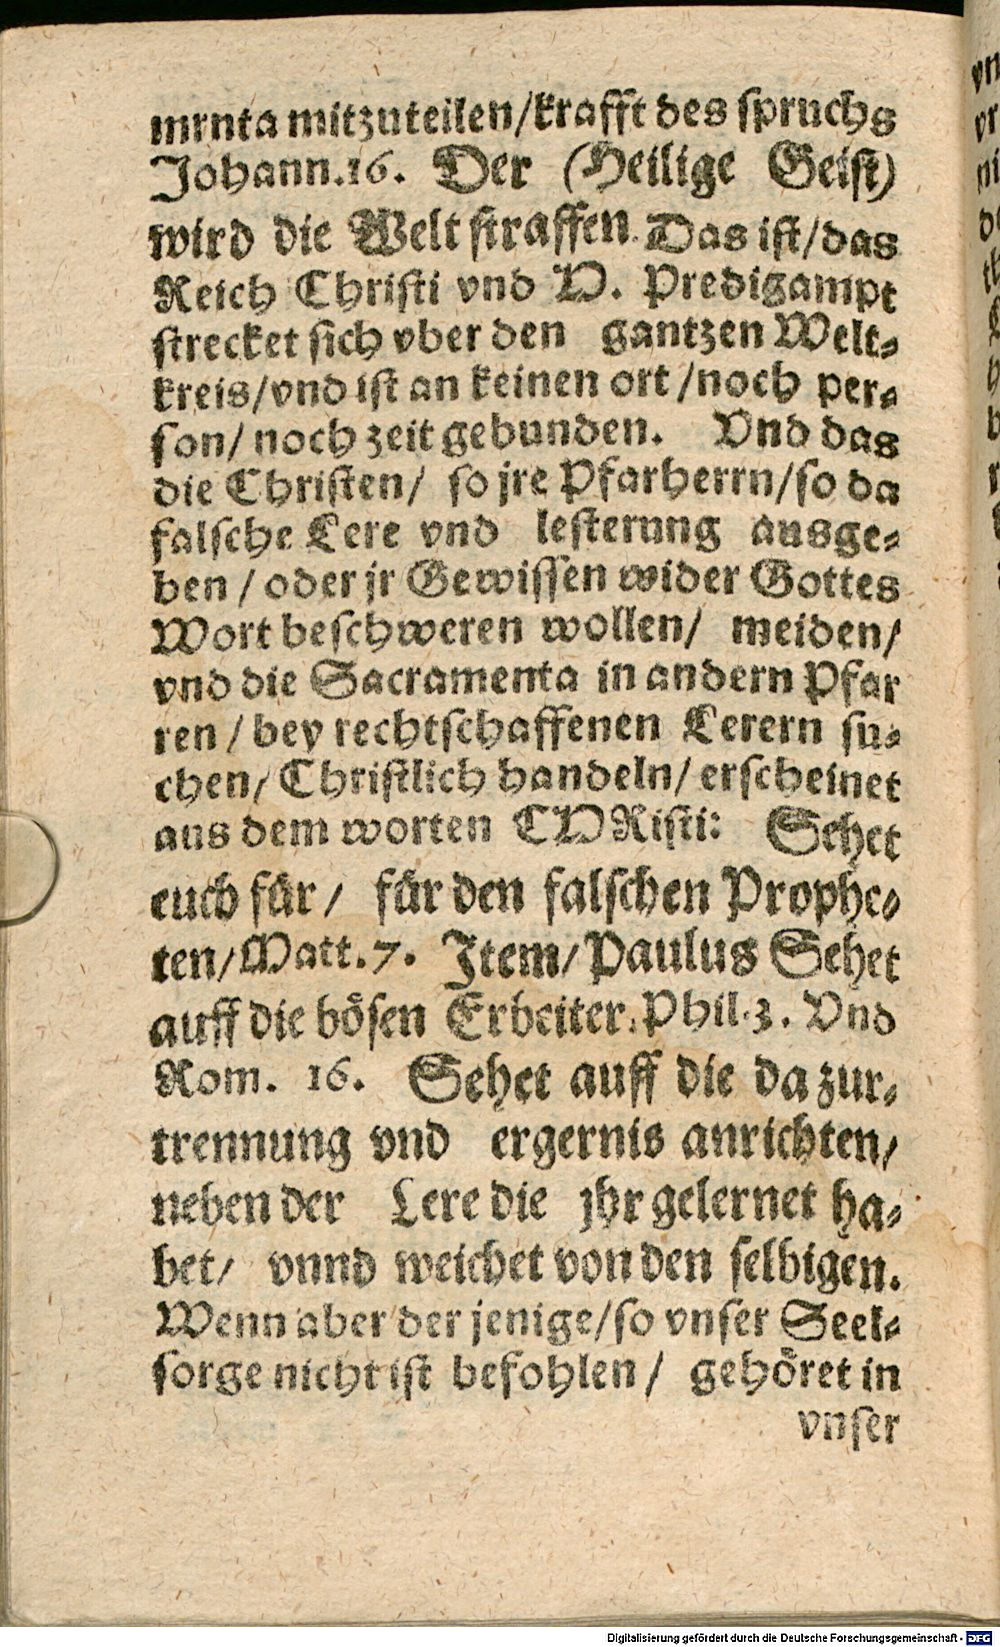 mrnta mitzuteilen/krafft des spruchs
Johann.16. Der (Heilige Geist)
wird die Welt straffen. Das ist/das
Reich Christi vnd V. Predigampt
strecket sich vber den gantzen Welt⸗
kreis/vnd ist an keinen ort/noch per⸗
son/ noch zeit gebunden. Vnd das
die Christen/ so jre Pfarherrn/so da
falsche Lere vnd lesterung ausge⸗
ben/ oder jr Gewissen wider Gottes
Wort beschweren wollen/ meiden/
vnd die Sacramenta in andern Pfar
ren/ bey rechtschaffenen Lerern su⸗
chen/ Christlich handeln/ erscheinet
aus dem worten CVRisti: Sehet
euch für/ für den falschen Prophe⸗
ten/Matt.7. Item/Paulus Sehet
auff die bösen Erbeiter. Phil.3. Vnd
Rom. 16. Sehet auff die da zur⸗
trennung vnd ergernis anrichten/
neben der Lere die jhr gelernet ha⸗
bet/ vnnd weichet von den selbigen.
Wenn aber der jenige/so vnser Seel⸗
sorge nicht ist befohlen/ gehöret in
vnser
Digitalisierung gefördert durch die Deutsche Forschungsgemeinschaft - DFG